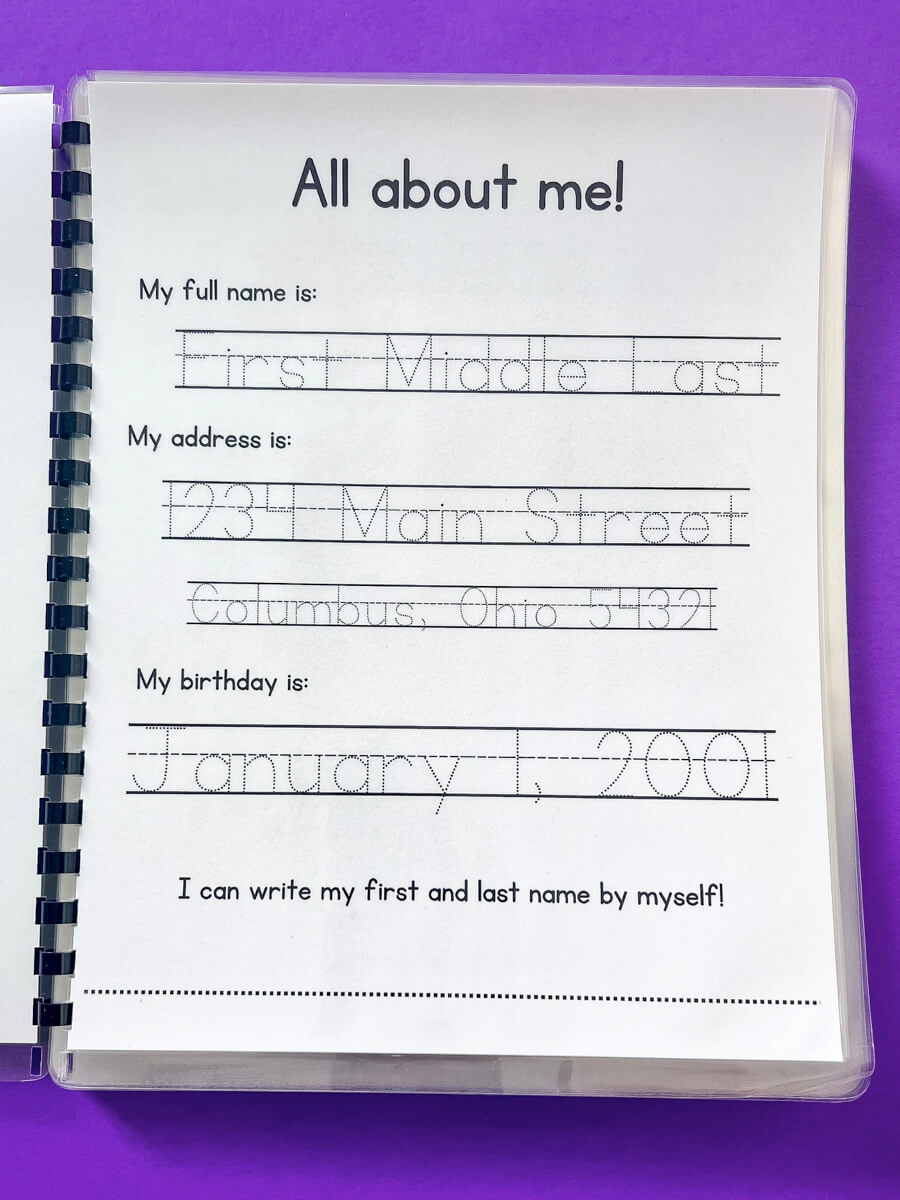 All about me!
My full name is:
First Middle Last
My address is:
1234 Main Street
Columbus, Ohio 54321
My birthday is:
January 1, 2001
I can write my first and last name by myself!